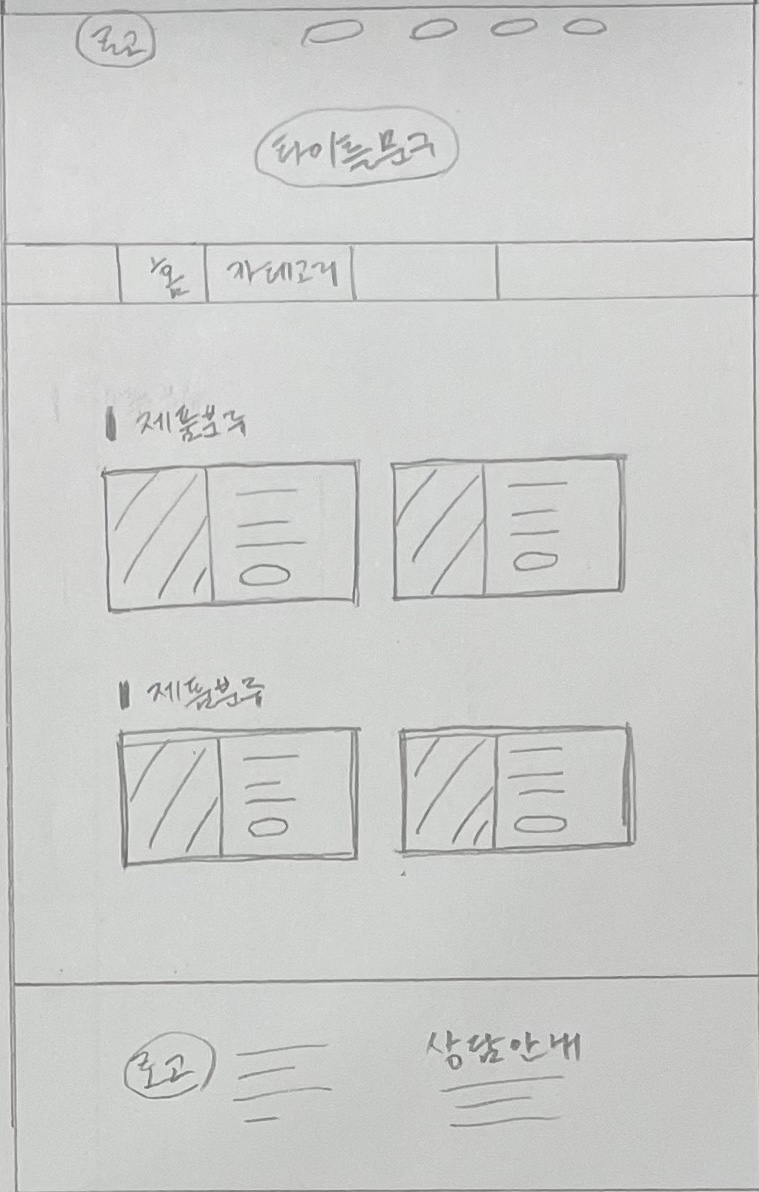 로고
타이틀문구
홈 카테고리
제품분류
제품분류
로고
상담안내